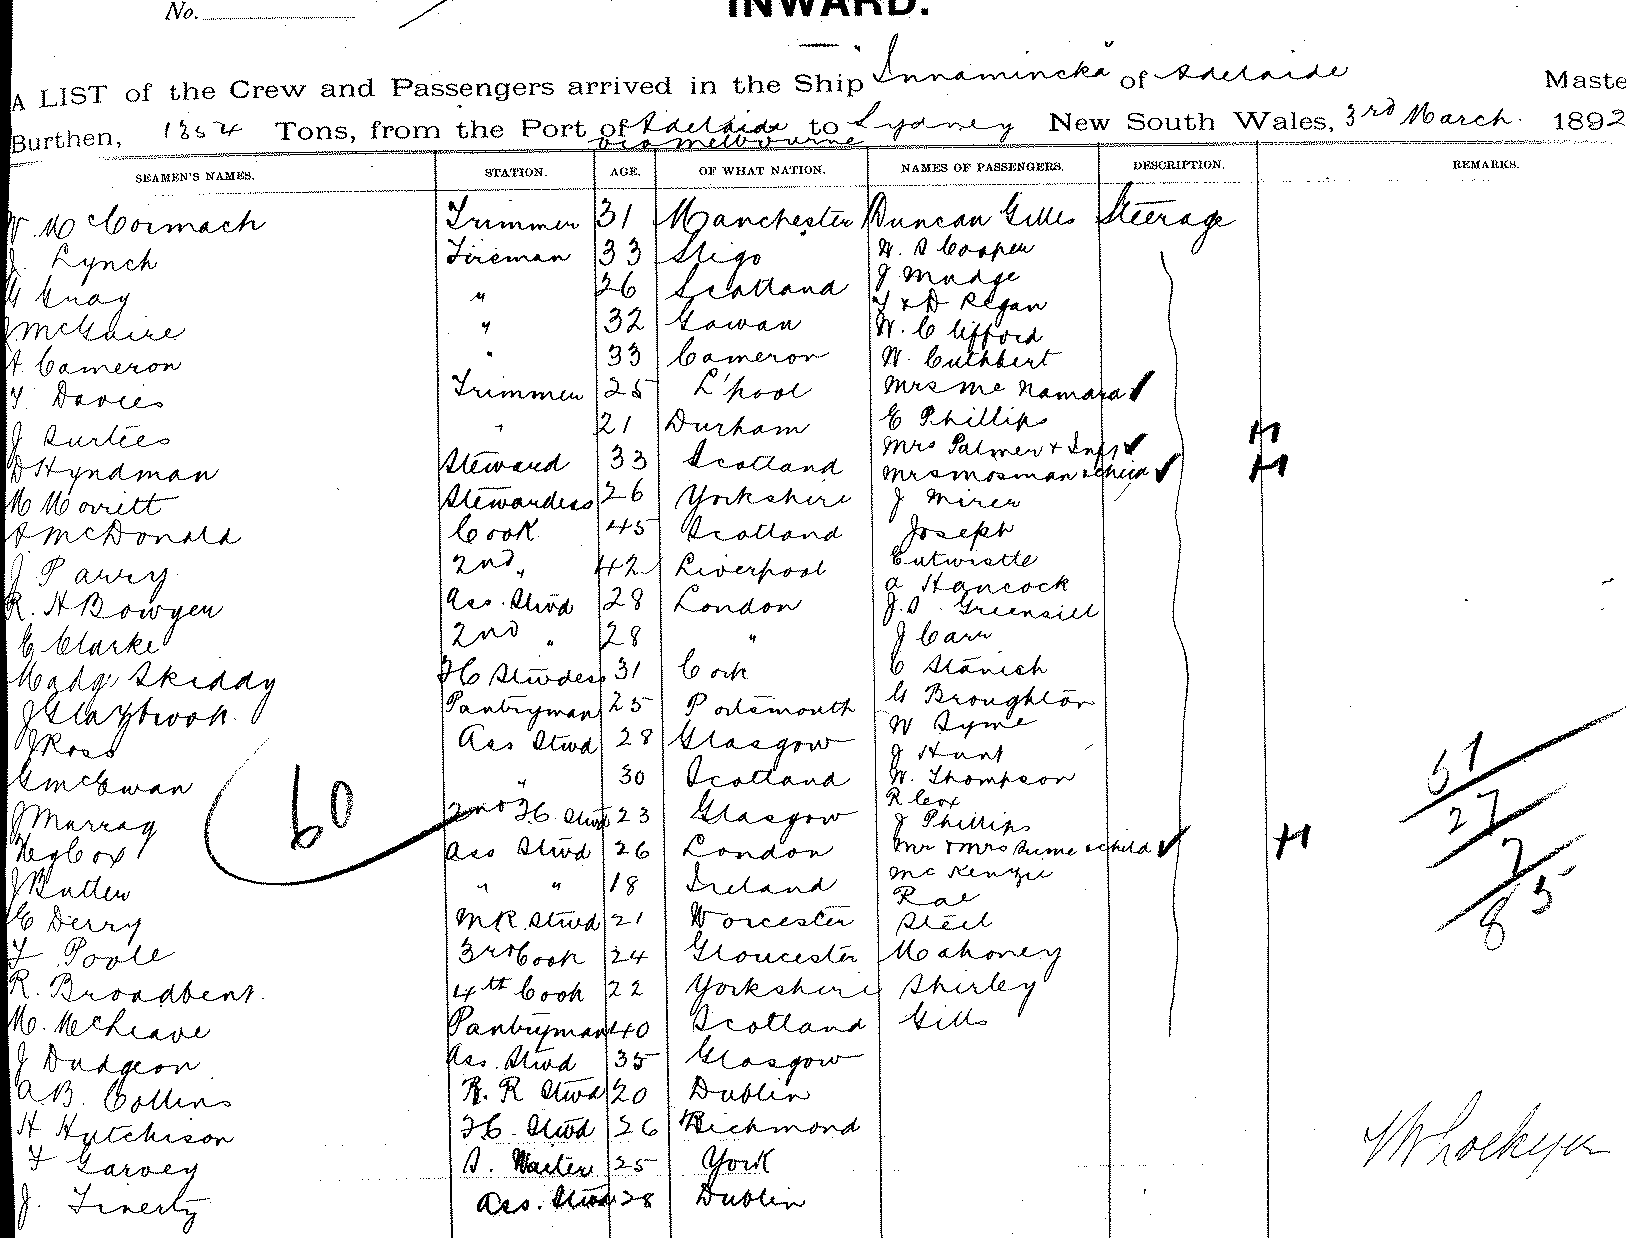 No.
INWARD.
A LIST of the Crew and Passengers arrived in the Ship Innamincka of Adelaide Maste
Burthen, Tons, from the Port of Adelaide to Sydney New South Wales, 3rd March. 1892
via melbourne
SEAMEN'S NAMES. STATION. AGE. OF WHAT NATION. NAMES OF PASSENGERS. DESCRIPTION. REMARKS.
W. McCormach Trimmer 31 Manchester Duncan Gilles Steerage
J. Lynch Fireman 33 Sligo W. S Cooper
Gray " 26 Scotland J Mudge
McGuire " 32 Gowan T & D Regan
A. Cameron " 33 Cameron W. Clifford
W. Cuthbert
T. Davies Trimmer 25 L'pool Mrs Mc Namara ✓
J Surtees " 21 Durham E Phillips
D Hyndman Steward 33 Scotland Mrs Palmer & Inft ✓ H
M Morritt Stewardess 26 Yorkshire Mrs Mosman & child ✓ H
J Mirer
A McDonald Cook 45 Scotland Joseph
J Parry 2nd " 42 Liverpool Entwistle
R. H Bowyer Ass. Stwd 28 London A Hancock
J. S. Greensill
C Clarke 2nd " 28 " J Carr
Madge Skiddy FC Stwdess 31 Cork C Stanish
J Claybrook Pantryman 25 Portsmouth G Broughton
J Ross Ass Stwd 28 Glasgow W Syme
J Hunt
G McEwan " 30 Scotland W. Thompson
R Cox
J Murray 2nd FC Stwd 23 Glasgow J Phillips
Hy Cox Ass Stwd 26 London Mr & Mrs Sume & child ✓ H
J Butler " " 18 Ireland McKenzie
Rae
C Derry MR Stwd 21 Worcester Steel
F Poole 3rd Cook 24 Gloucester Mahoney
R. Broadbent. 4th Cook 22 Yorkshire Shirley
M. Pantryman 40 Scotland Gills
J Dudgeon Ass. Stwd 35 Glasgow
A B. Collins R. R Stwd 20 Dublin
H Hutchison FC. Stwd 26 Richmond
F Garvey S. Waiter 25 York
J. Finerty Ass. Stwd 28 Dublin
60
27
85